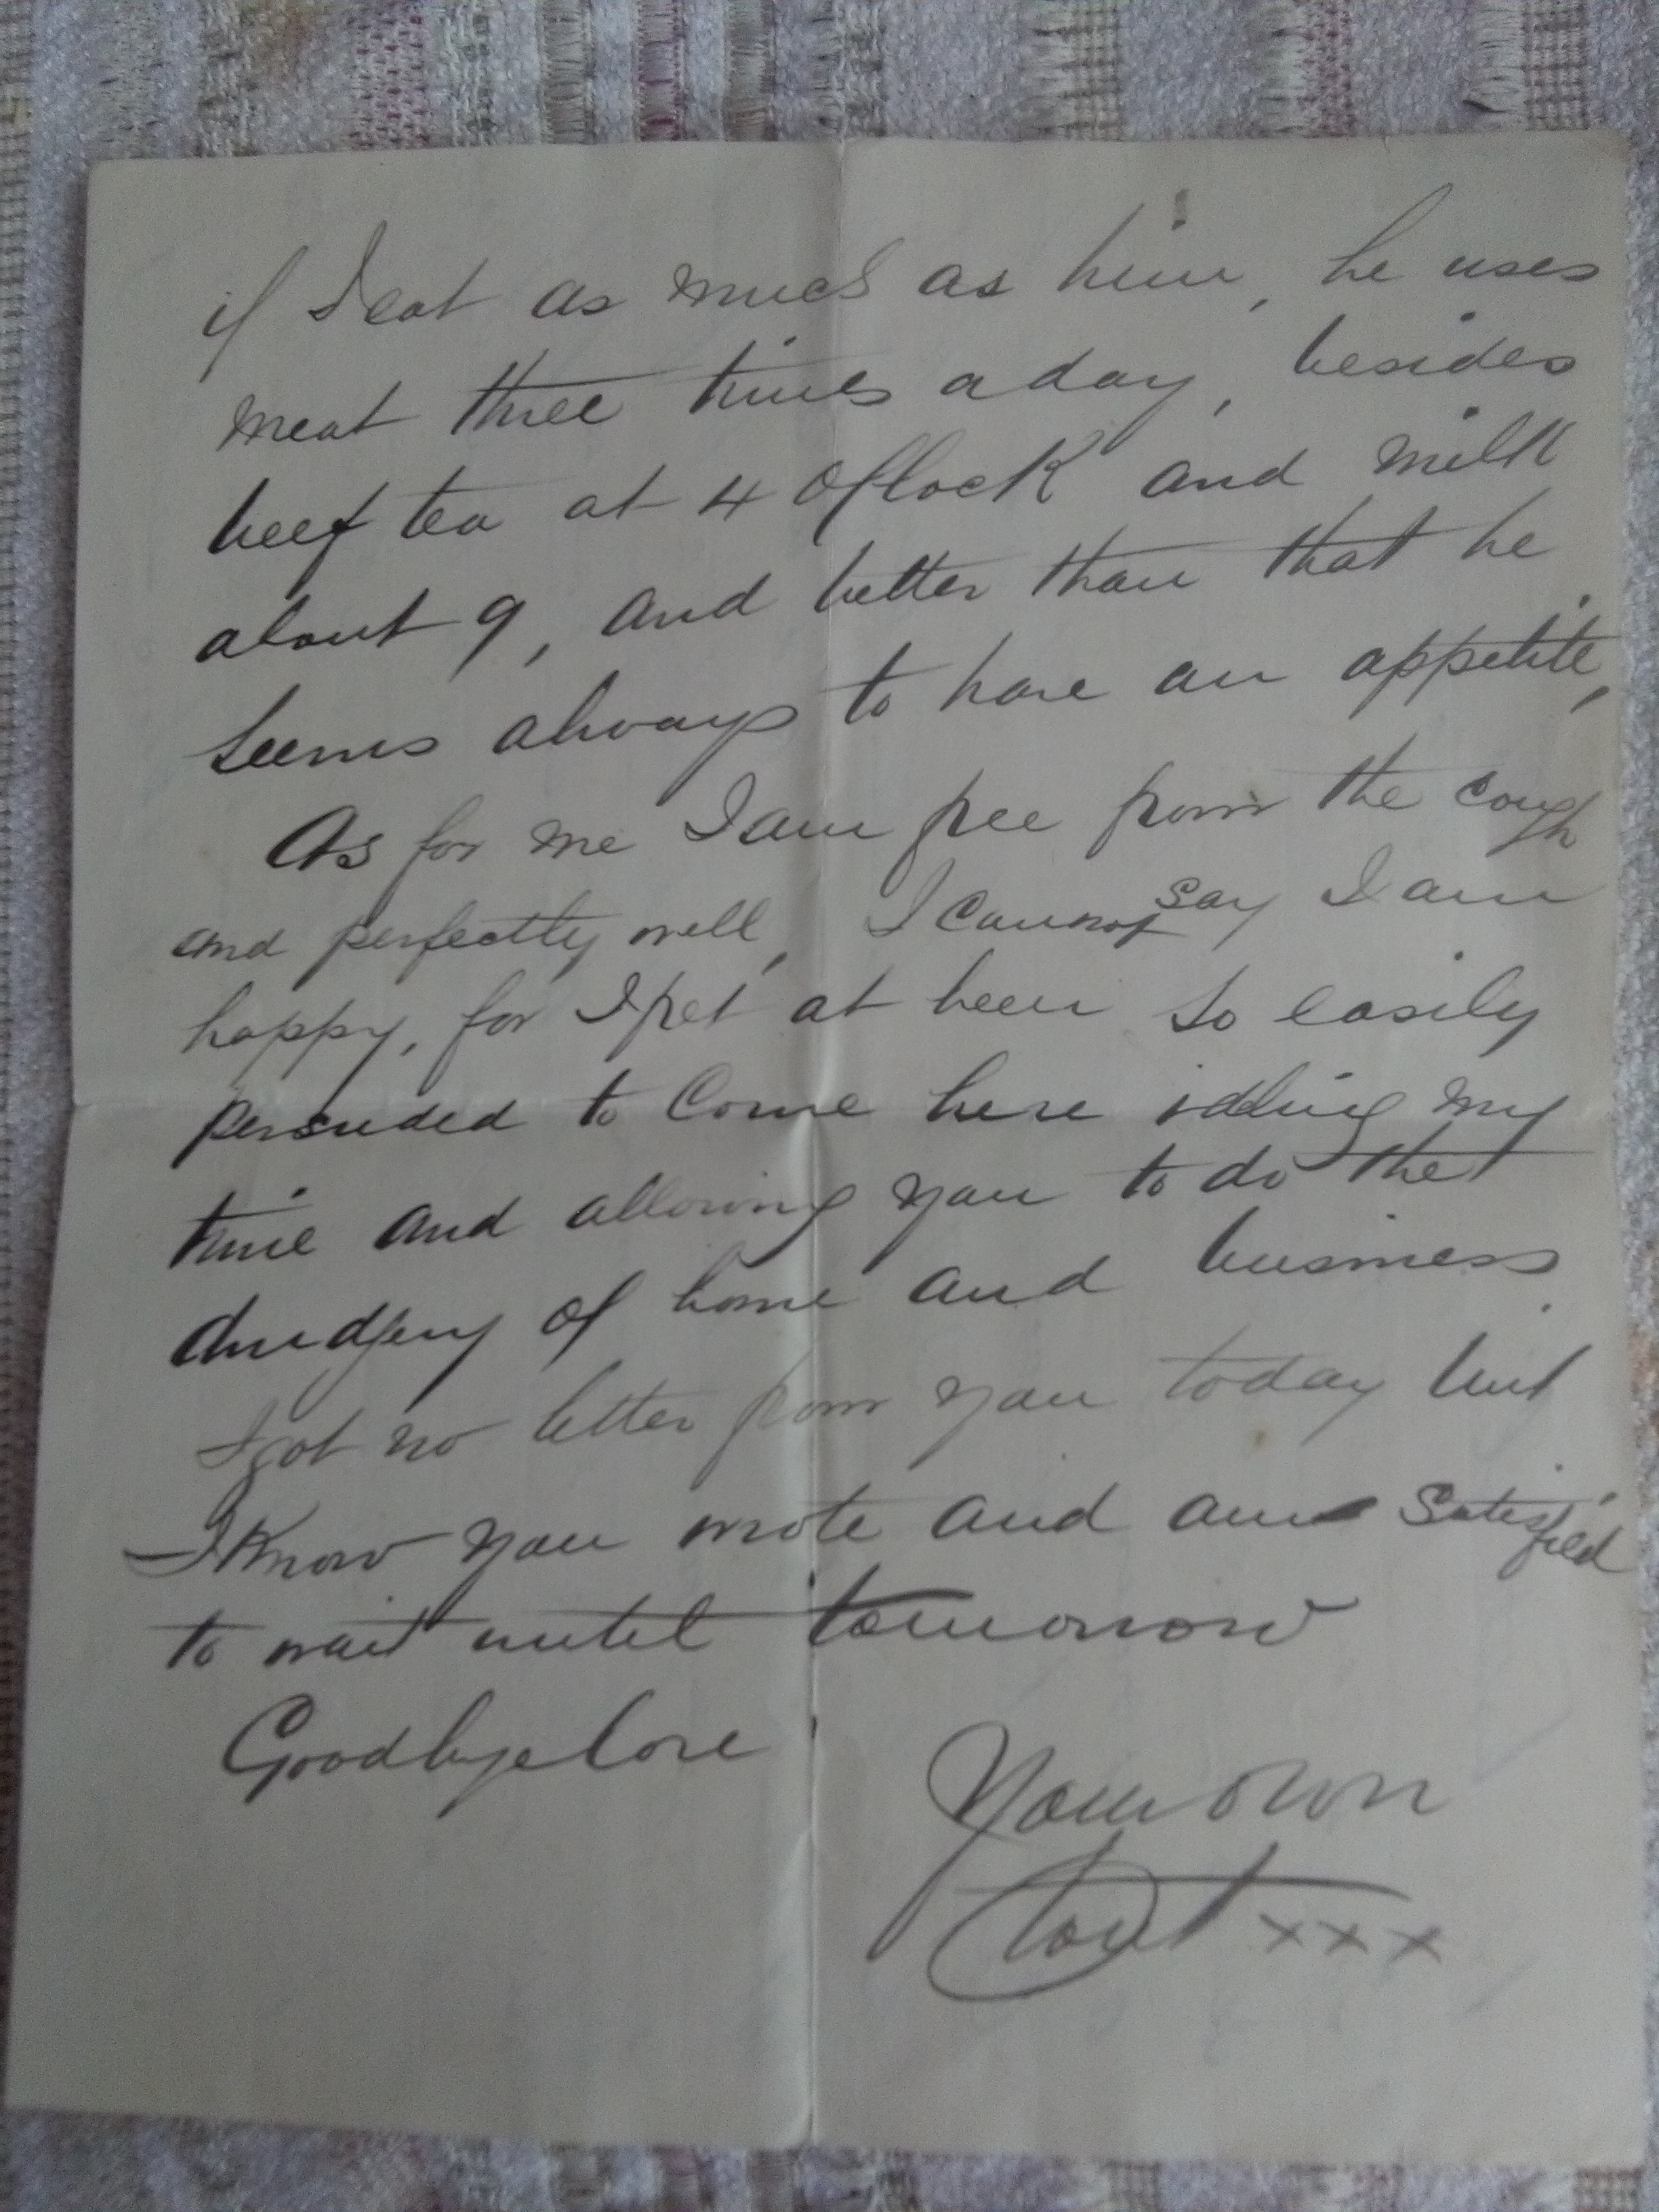 if I eat as much as him, he uses
meat three times a day, besides
beef tea at 4 O'Clock and milk
about 9, and better than that he
seems always to have an appetite,
As for me I am free from the cough
and perfectly well, I cannot say I am
happy, for I fret at been so easily
persuded to Come here idling my
time and allowing you to do the
drudgery of home and business.
I got no letter from you today but
I know you wrote and am satisfied
to wait until tomorrow
Goodbye love
Your own
xxx